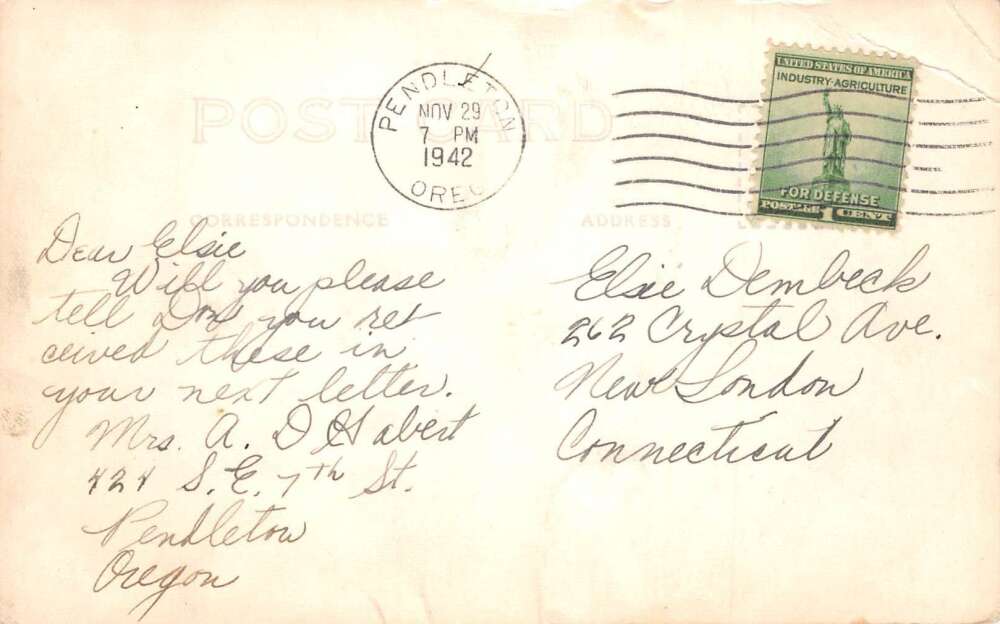 POST CARD
PENDLETON
NOV 29
7 PM
1942
OREG
UNITED STATES OF AMERICA
INDUSTRY-AGRICULTURE
FOR DEFENSE
POSTAGE 1 CENT
CORRESPONDENCE
ADDRESS
Dear Elsie
Will you please
tell you re
ceived these in
your next letter.
Mrs. A. D
424 S.E. 7th St.
Pendleton
Oregon
Elsie Dembeck
262 Crystal Ave.
New London
Connecticut